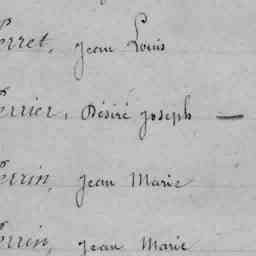 Perret, Jean Louis
Perrier, Désiré Joseph —
Perrin, Jean Marie
Perrin, Jean Marie